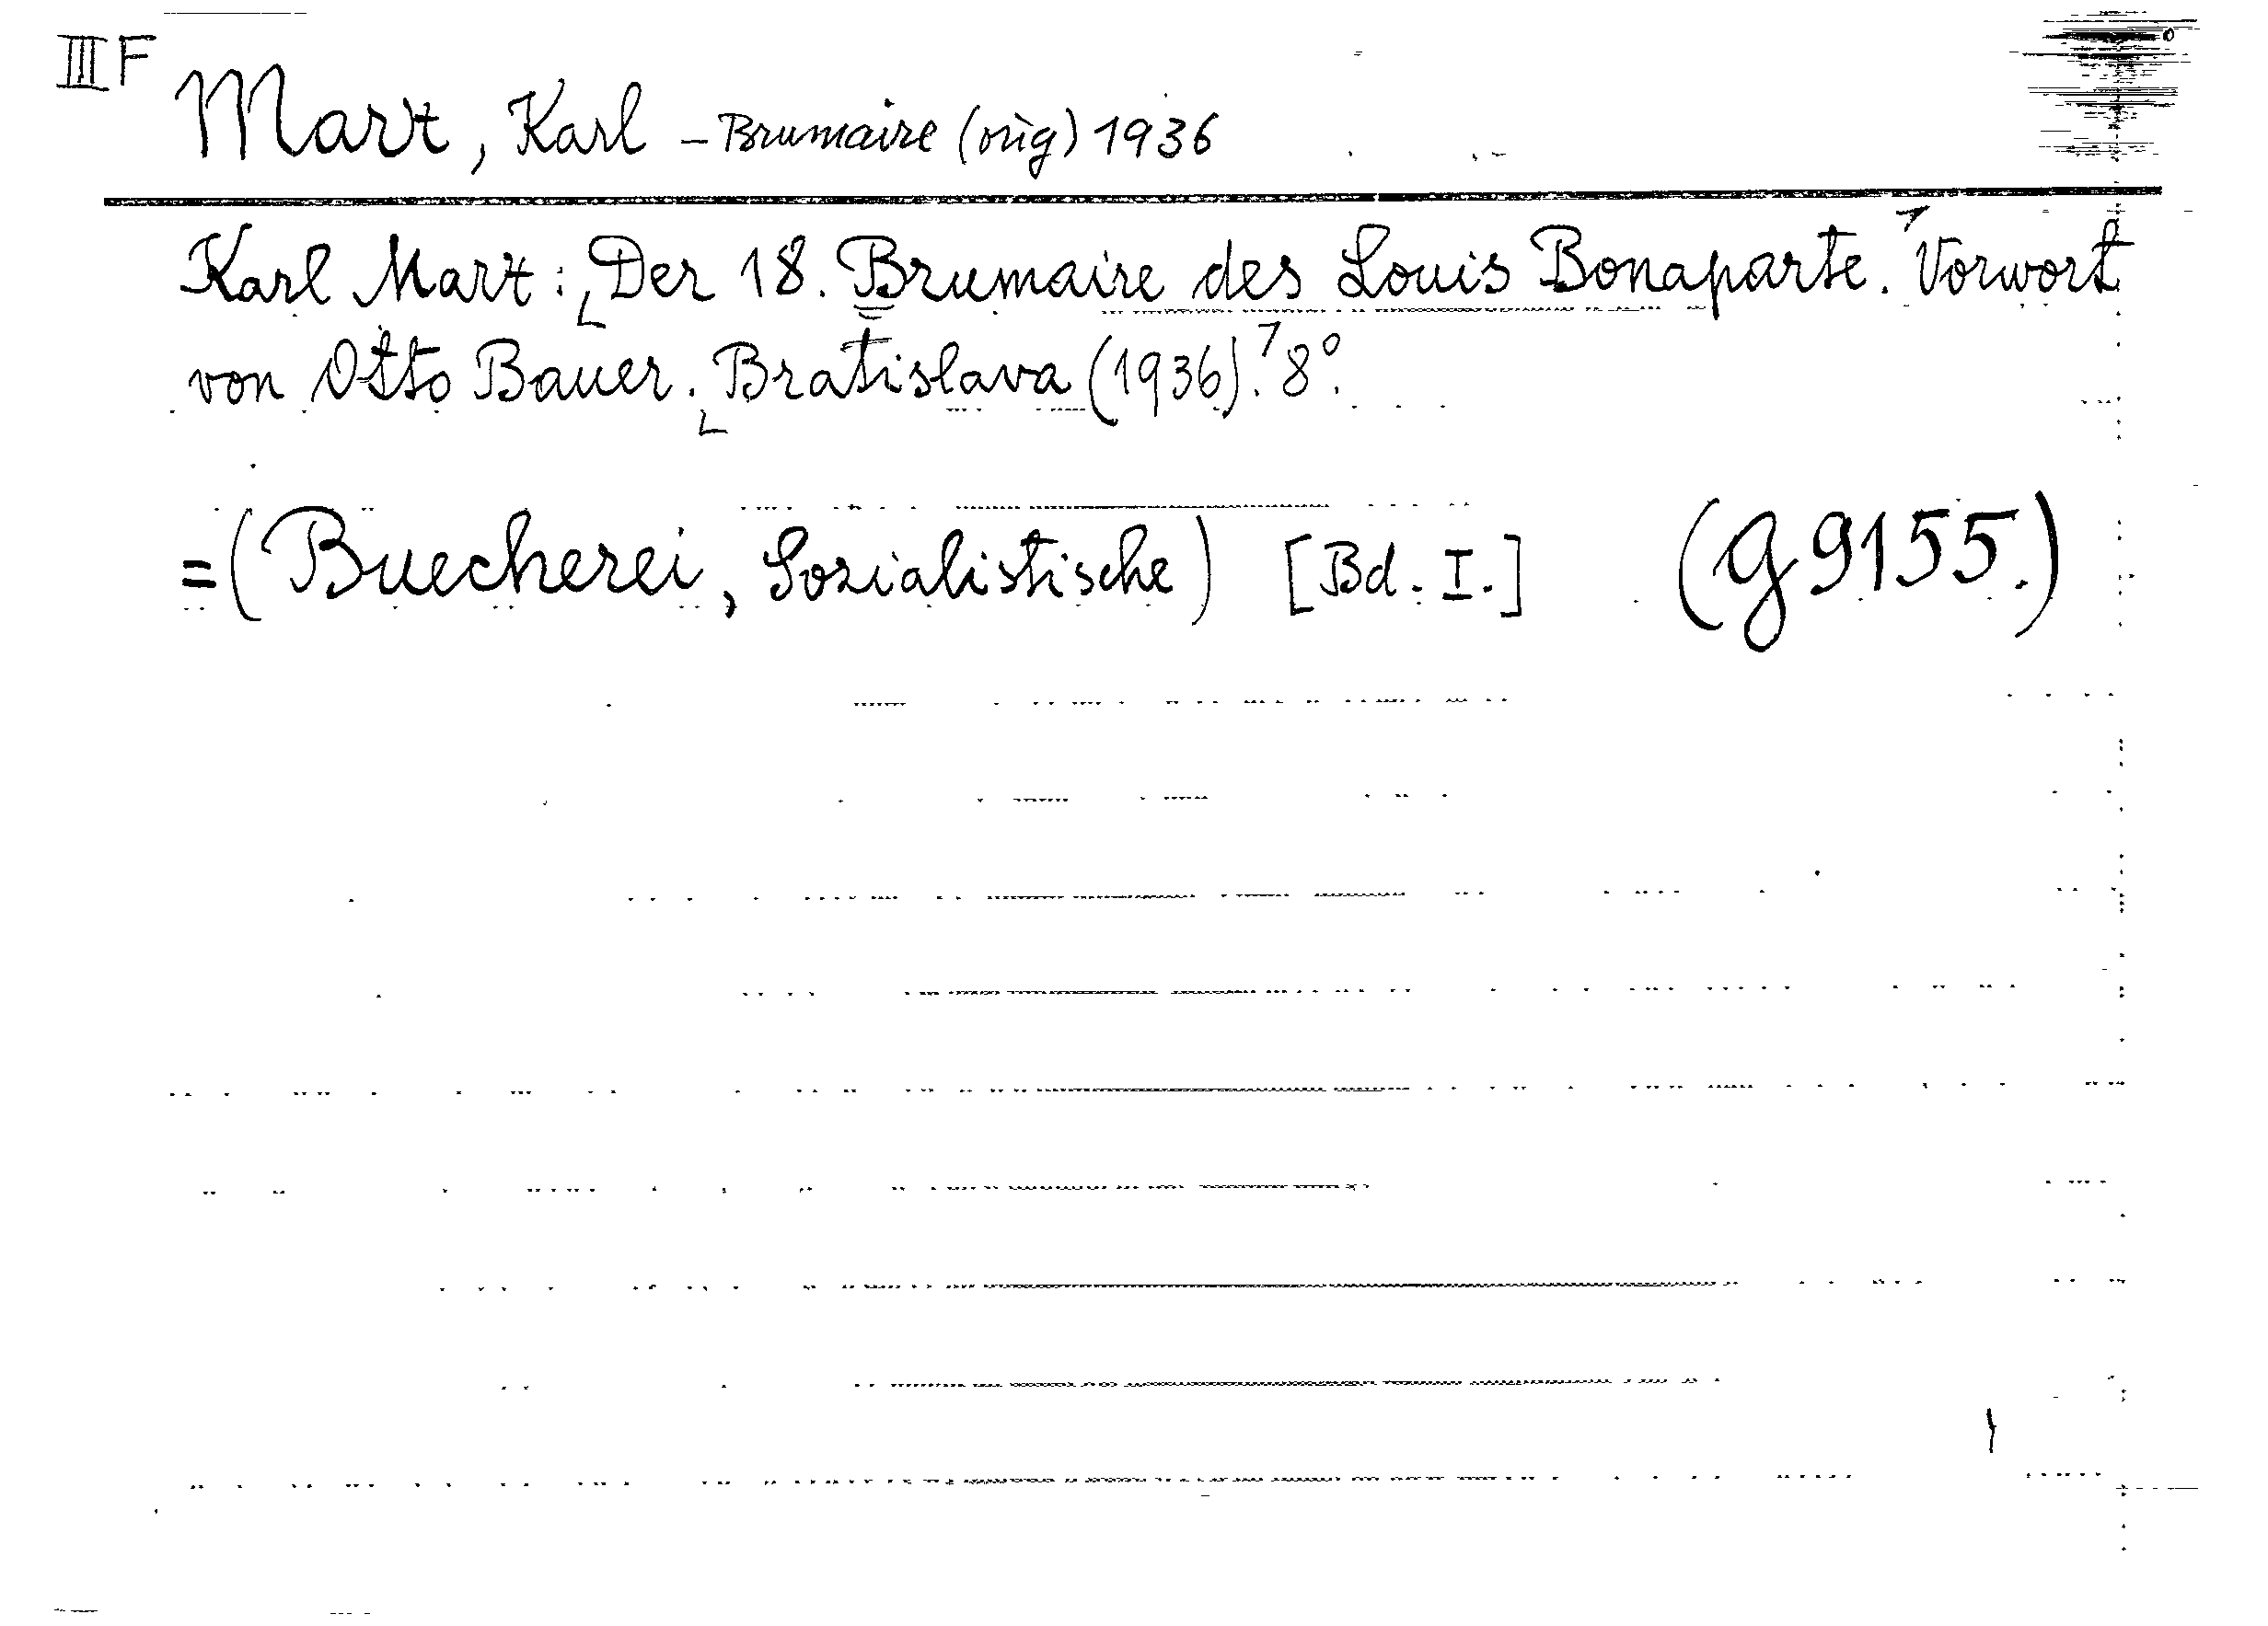 III F
Marx, Karl – Brumaire (orig) 1936
Karl Marx: Der 18. Brumaire des Louis Bonaparte. Vorwort
von Otto Bauer. Bratislava (1936). 8°.
=(Buecherei, Sozialistische) [Bd. I.] (g 9155.)